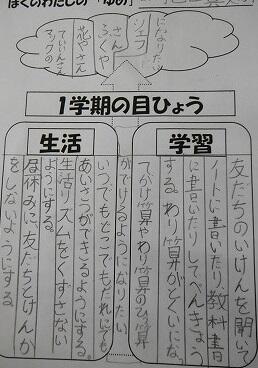 ぼくのわたしの「ゆめ」
になりたい
シェフ
さん
ふくや
花やさん
ていいんさん
マックの
1学期の目ひょう
学習
友だちのいけんを聞いて
ノートに書いたり教科書
に書いたりしてべんきょう
する。わり算がとくいにな
てかけ算やわり算のひっ算
ができるようになりたい
生活
いつでもどこでもだれにでも
あいさつができるようにする。
生活リズムをくずさない
ようにする。
昼休みに友だちとけんか
をしないようにする